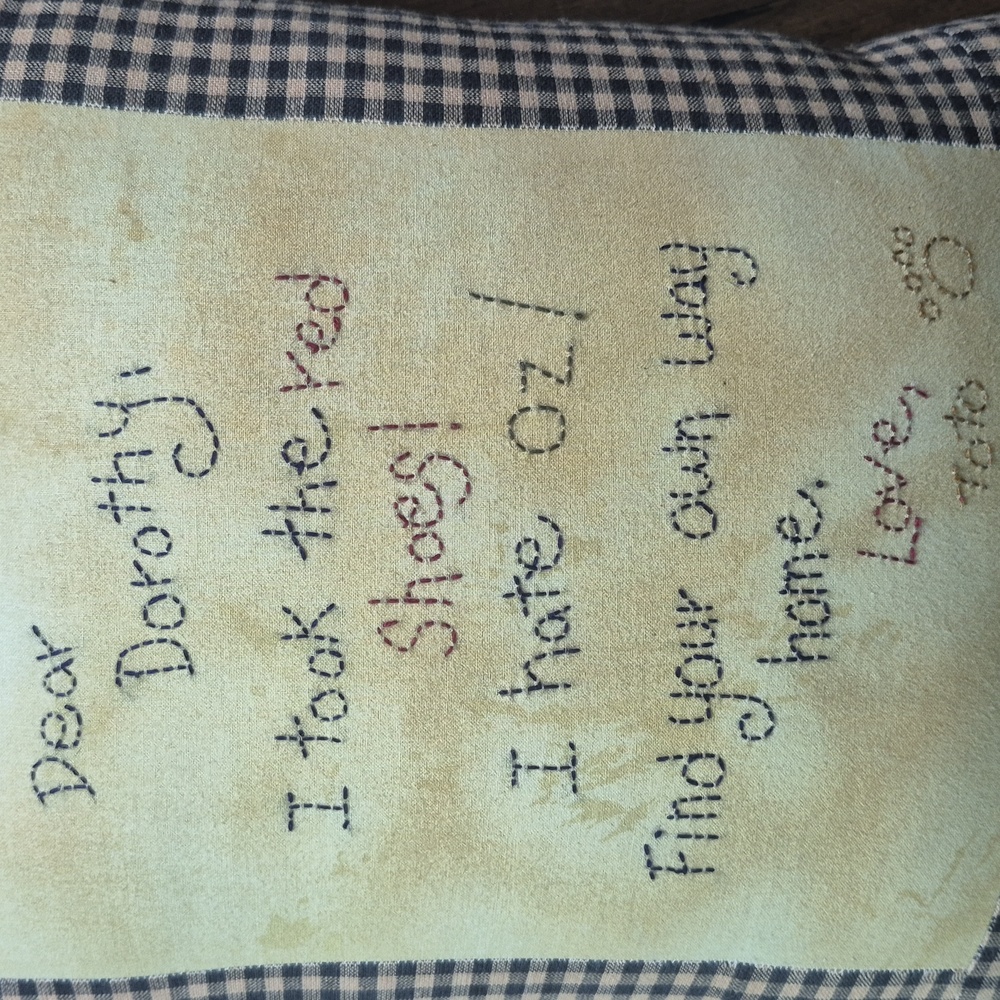 Dear
Dorothy,
I took the red
Shoes!
I hate Oz!
Find your own way
home.
Love,
Toto